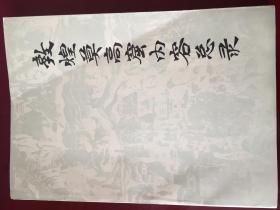 敦煌莫高窟内容总录